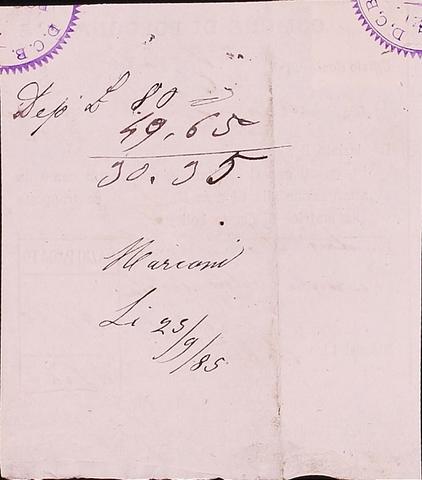 D.C.B.
D.C.B.
Dep £ 80
49,65
30.35
Marconi
Li 25/9/85